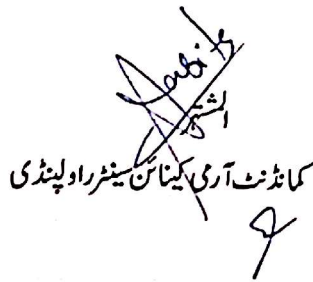 المشتہر
کمانڈنٹ آرمی کینائن سینٹر راولپنڈی